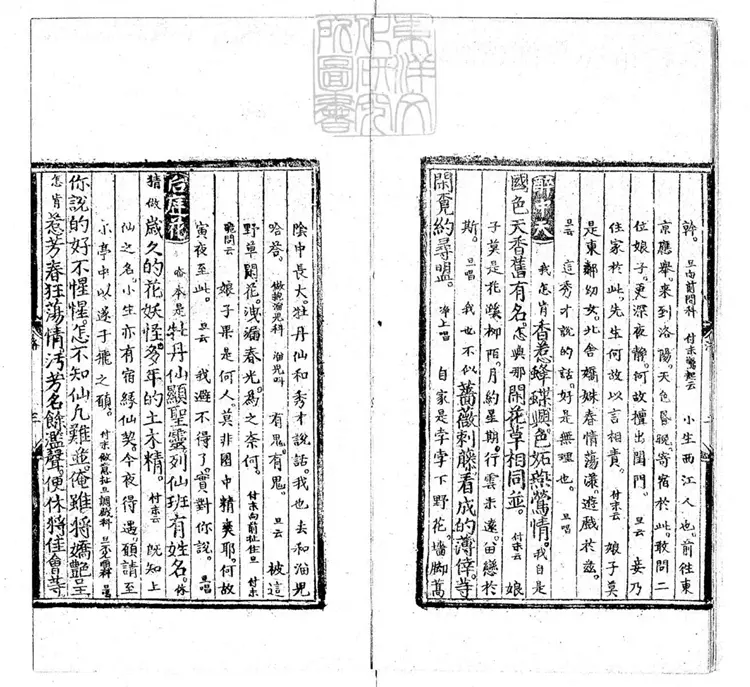 東洋文化研究所圖書
幹。旦向前問科 付末驚起云 小生西江人也。前徃東
京應舉。來到洛陽。天色昏晚。寄宿於此。敢問二
位娘子。更深夜静。何故擅出閨門。旦云 妾乃
住家於此。先生何故以言相責。付末云 娘子莫
是東鄰幼女。北舍嬌姝。春情蕩漾。遊戲於茲。
旦云 這秀才說的話。好是無理也。旦唱
醉中天 我怎肯香惹蜂蝶興。色妬燕鶯情。我自是
國色天香舊有名。怎與那閑花草相同並。付末云 娘
子莫是花蹊柳陌。月約星期。行雲未遂。留戀於
斯。旦唱 我也不似薔薇刺藤。看成的薄倖。等
閑覓約尋盟。淨上唱 自家是字字下野花。墻脚蒿
陰中長大。牡丹仙和秀才說話。我也去和洎兒
咯荅。洎兒叫 有鬼。有鬼。旦云 被這
野草閑花。洩漏春光。為之奈何。付末向前扯住旦 付末
跪問云 娘子果是何人。莫非園中精爽耶。何故
寅夜至此。旦云 我避不得了。實對你說。旦唱
后庭花 俺本是牡丹仙顯聖靈。列仙班有姓名。休
猜做歲久的花妖怪。多年的土木精。付末云 旣知上
仙之名。小生亦有宿緣仙契。今夜得遇。願請至
小亭中以遂于飛之願。付末做意扯旦調戲科 旦唱
你說的好不惺惺。怎不知仙凡難並。俺雖將嬌艷呈
怎肯惹芳春狂蕩情。汚芳名餘濫聲。便休將佳會等